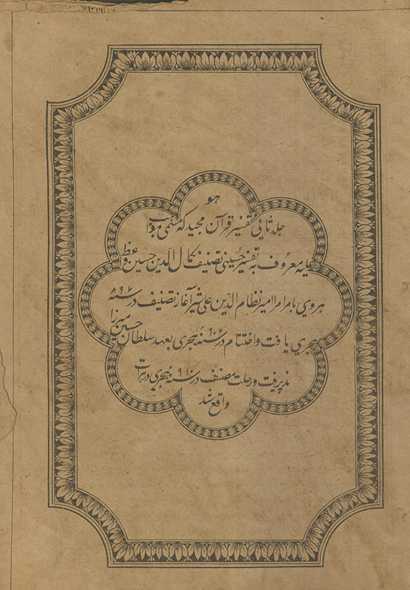 هو
جلد ثانی تفسیر قرآن مجید که مسمی بمواهب
علیه معروف به تفسیر حسینی تصنیف کمال الدین حسین واعظ
هروی بامر امیر نظام الدین علی شیر آغاز تصنیف در سنه ۸۹۷
هجری یافت و اختتام در سنه هجری بعهد سلطان حسین میرزا
پذیرفت و رحلت مصنف در سنه ۹۱۰ هجری در هرات
واقع شد